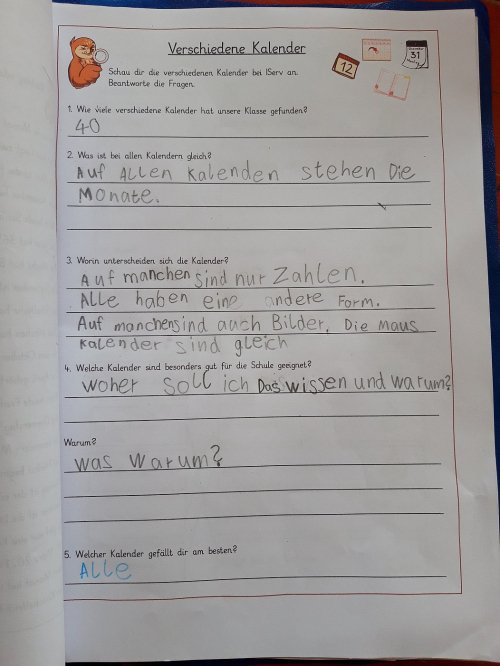 Verschiedene Kalender
Schau dir die verschiedenen Kalender bei IServ an.
Beantworte die Fragen.
12
31
1. Wie viele verschiedene Kalender hat unsere Klasse gefunden?
40
2. Was ist bei allen Kalendern gleich?
Auf ALLen Kalenden stehen Die
Monate.
3. Worin unterscheiden sich die Kalender?
Auf manchen sind nur Zahlen.
Alle haben eine andere Form.
Auf manchen sind auch Bilder. Die Maus
Kalender sind gleich
4. Welche Kalender sind besonders gut für die Schule geeignet?
woher soll ich Das wissen und warum?
Warum?
was warum?
5. Welcher Kalender gefällt dir am besten?
Alle